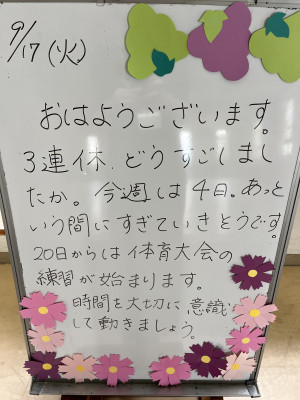 9/17(火)
おはようございます。
3連休、どうすごしまし
たか。今週は4日。あっと
いう間にすぎていきそうです。
20日からは体育大会の
練習が始まります。
時間を大切に意識
して動きましょう。